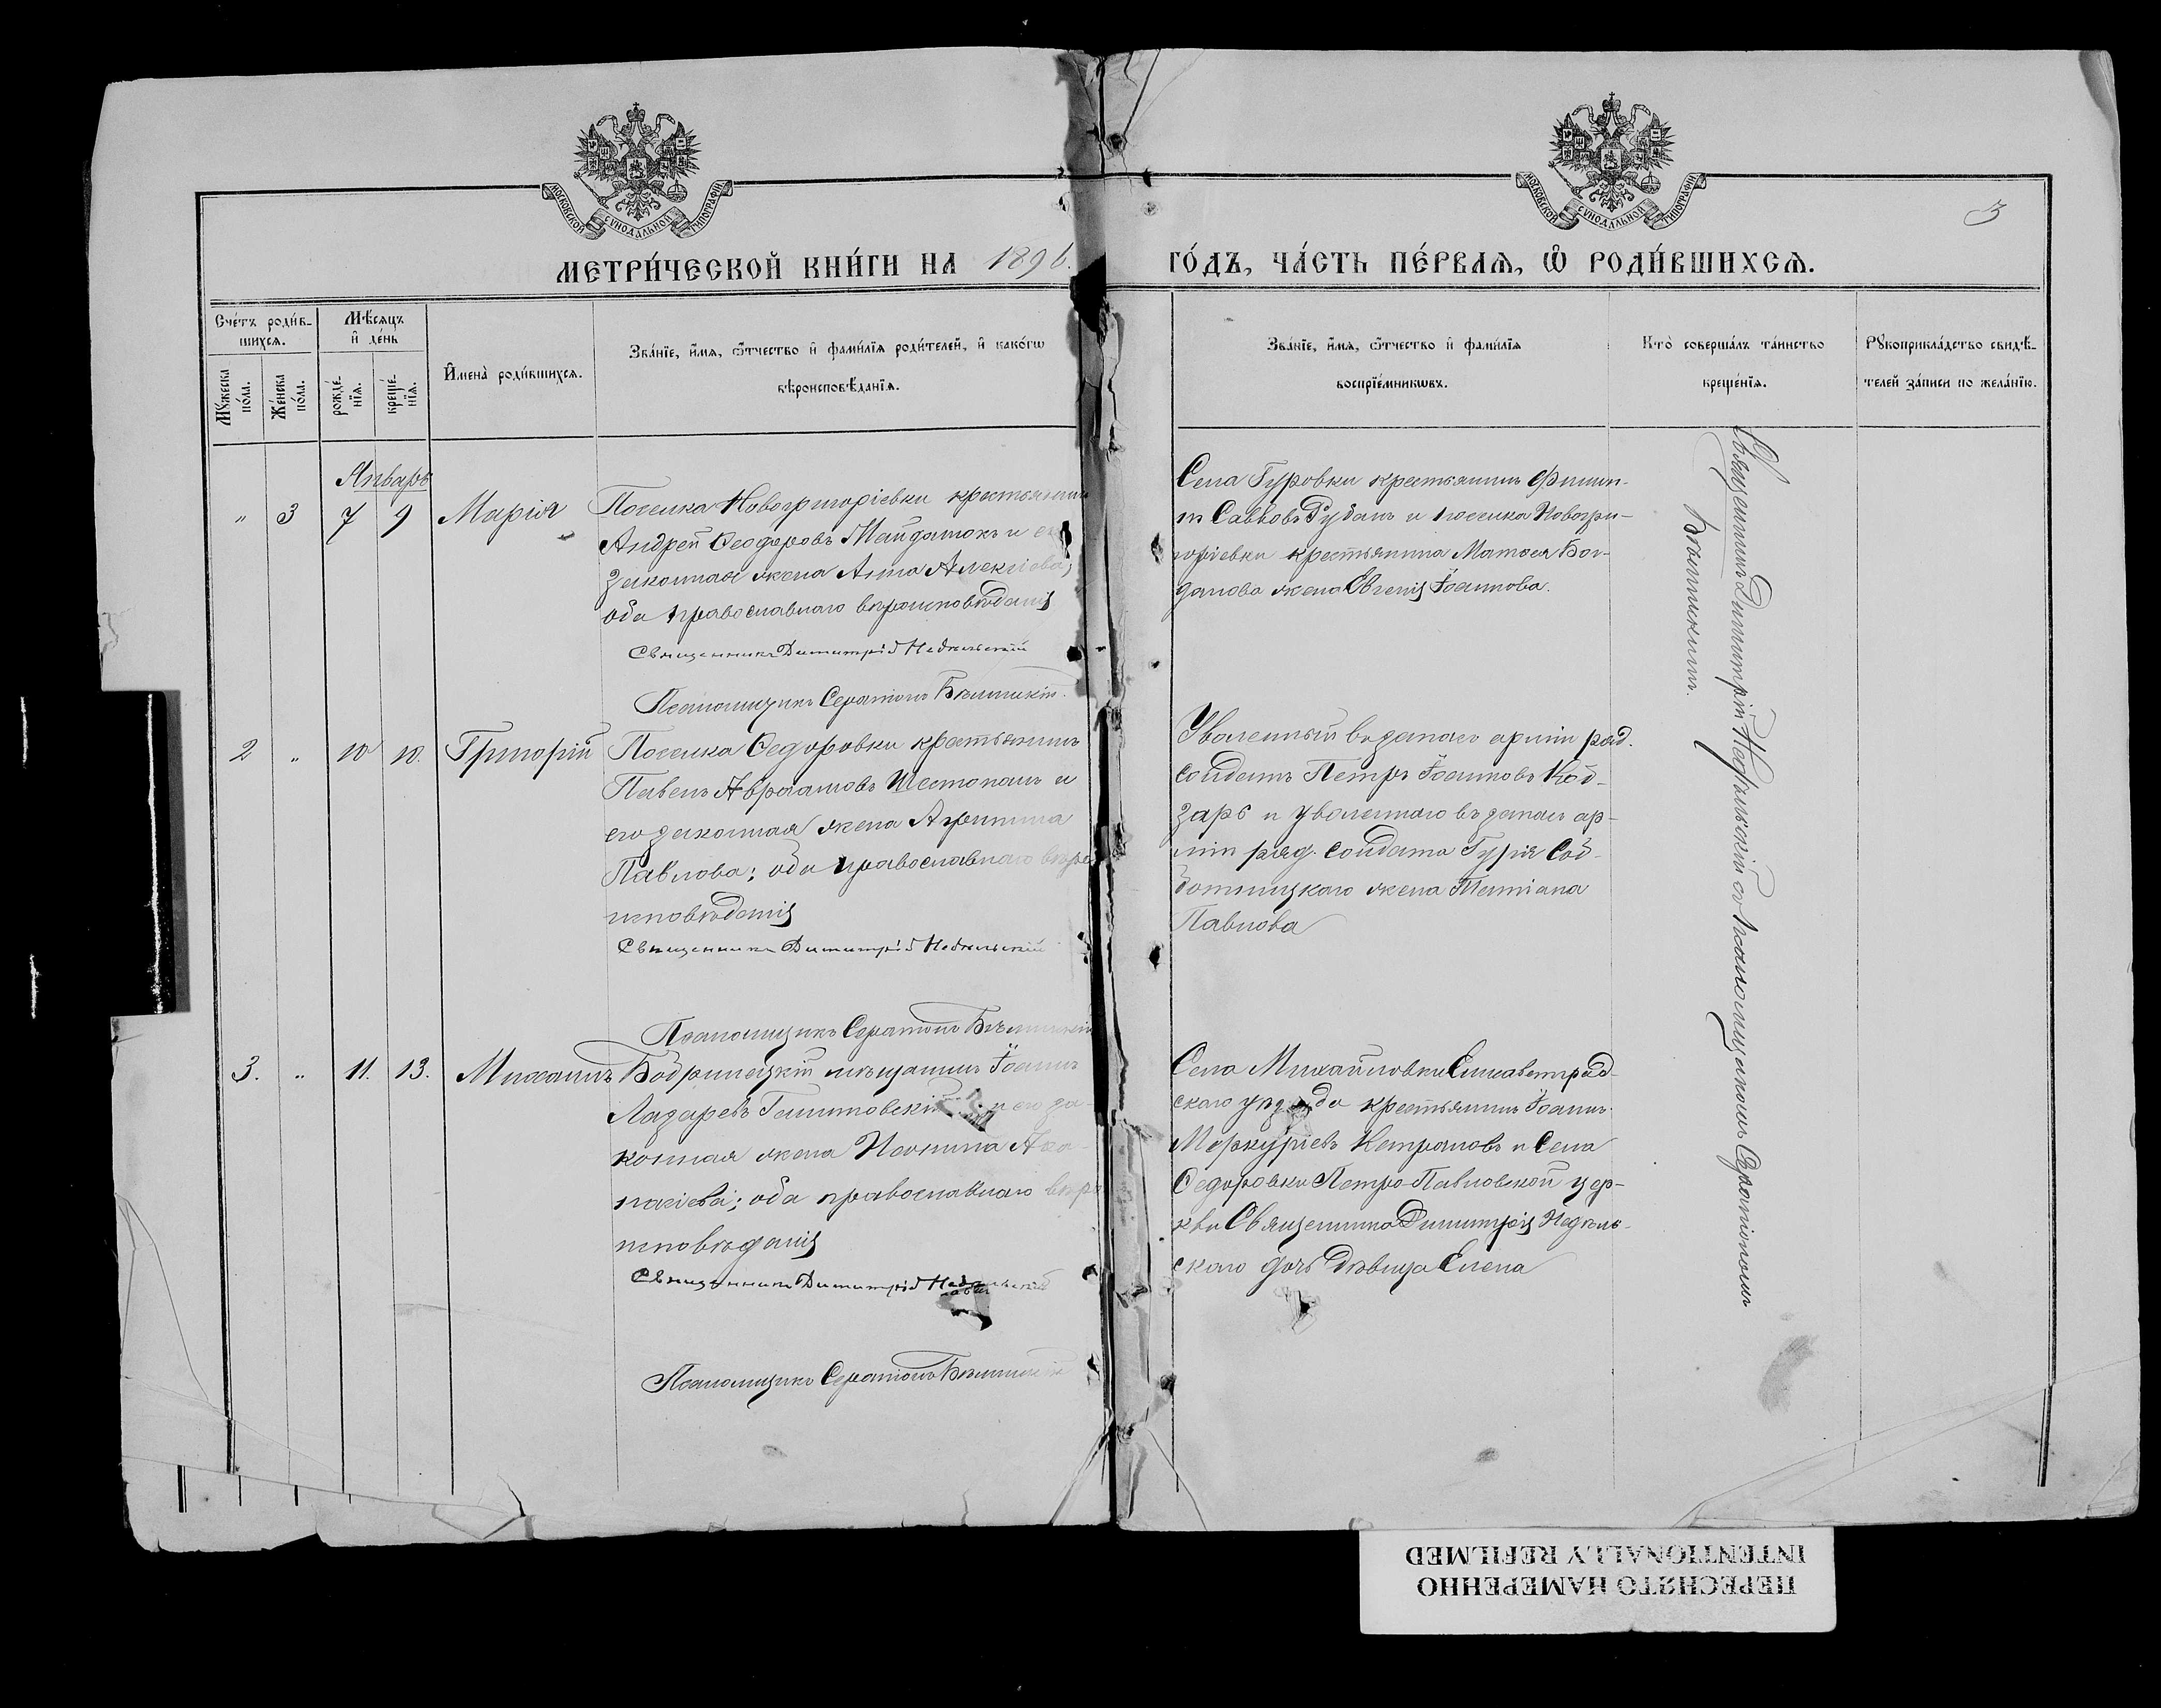 МОСКОВСКОЙ СѴНОДАЛЬНОЙ ТИПОГРАФІИ
МОСКОВСКОЙ СѴНОДАЛЬНОЙ ТИПОГРАФІИ
3
МЕТРИ́ЧЕСКОЙ КНИ́ГИ НА 1896. ГО́ДЪ, ЧА́СТЬ ПЕ́РВАѦ, Ѽ РОДИ́ВШИХСѦ.
Сче́тъ роди́в-
шихсѧ.
Мѣ́сѧцъ
и҆ де́нь
Мꙋ́жеска
по́ла.
Же́нска
по́ла.
рожде́-
нїѧ.
креще́-
нїѧ.
И҆мена̀ роди́вшихсѧ.
Зва́нїе, и҆́мѧ, ѻ҆́тчество и҆ фами́лїѧ роди́телей, и҆ како́гѡ
вѣроисповѣ́данїѧ.
Зва́нїе, и҆́мѧ, ѻ҆́тчество и҆ фами́лїѧ
воспрїе́мникѡвъ.
Кто̀ соверша́лъ та́инство
креще́нїѧ.
Рꙋкоприкла́дство свидѣ́-
телей за́писи по жела́нїю.
Январь
" 3 7 9 Марія
Поселка Новогригоріевки крестьянинъ
Андрей Ѳеодоровъ Майданюкъ и его
законная жена Анна Алексіева;
оба православнаго вѣроисповѣданія
Священникъ Димитрій Недѣльскій
Псаломщикъ Серапіонъ
Села Гуровки крестьянинъ Филип-
пъ Савковъ Рубанъ и поселка Новогри-
горіевки крестьянина Матѳея Бог-
данова жена Евгенія Іоаннова.
Священникъ Димитрій Недѣльскій съ псаломщикомъ Серапіономъ
2 " 10 10. Григорій
Поселка Ѳедоровки крестьянинъ
Павелъ Авраамовъ Шестопалъ и
его законная жена Агрипина
Павлова; оба православнаго вѣро
исповѣданія
Священникъ Димитрій Недѣльскій
Псаломщикъ Серапіонъ
Уволенный въ запасъ арміи ряд.
солдатъ Петръ Іоанновъ Коб-
зарь и уволеннаго въ запасъ ар-
міи ряд. солдата Гурія Соб-
ботницкаго жена Татіана
Павлова
3. " 11. 13. Михаилъ
Бобринецкій мѣщанинъ Іоаннъ
Лазаревъ и его за-
конная жена Неонила Аѳа-
насіева; оба православнаго вѣро
исповѣданія
Священникъ Димитрій Недѣльскій
Псаломщикъ Серапіонъ
Села Михайловки Елисаветград-
скаго уѣзда крестьянинъ Іоаннъ
Меркуріевъ и села
Ѳедоровки Петро-Павловской цер-
кви Священника Димитрія Недѣль-
скаго дочь дѣвица Елена
ПЕРЕСНЯТО НАМЕРЕННО
INTENTIONALLY REFILMED